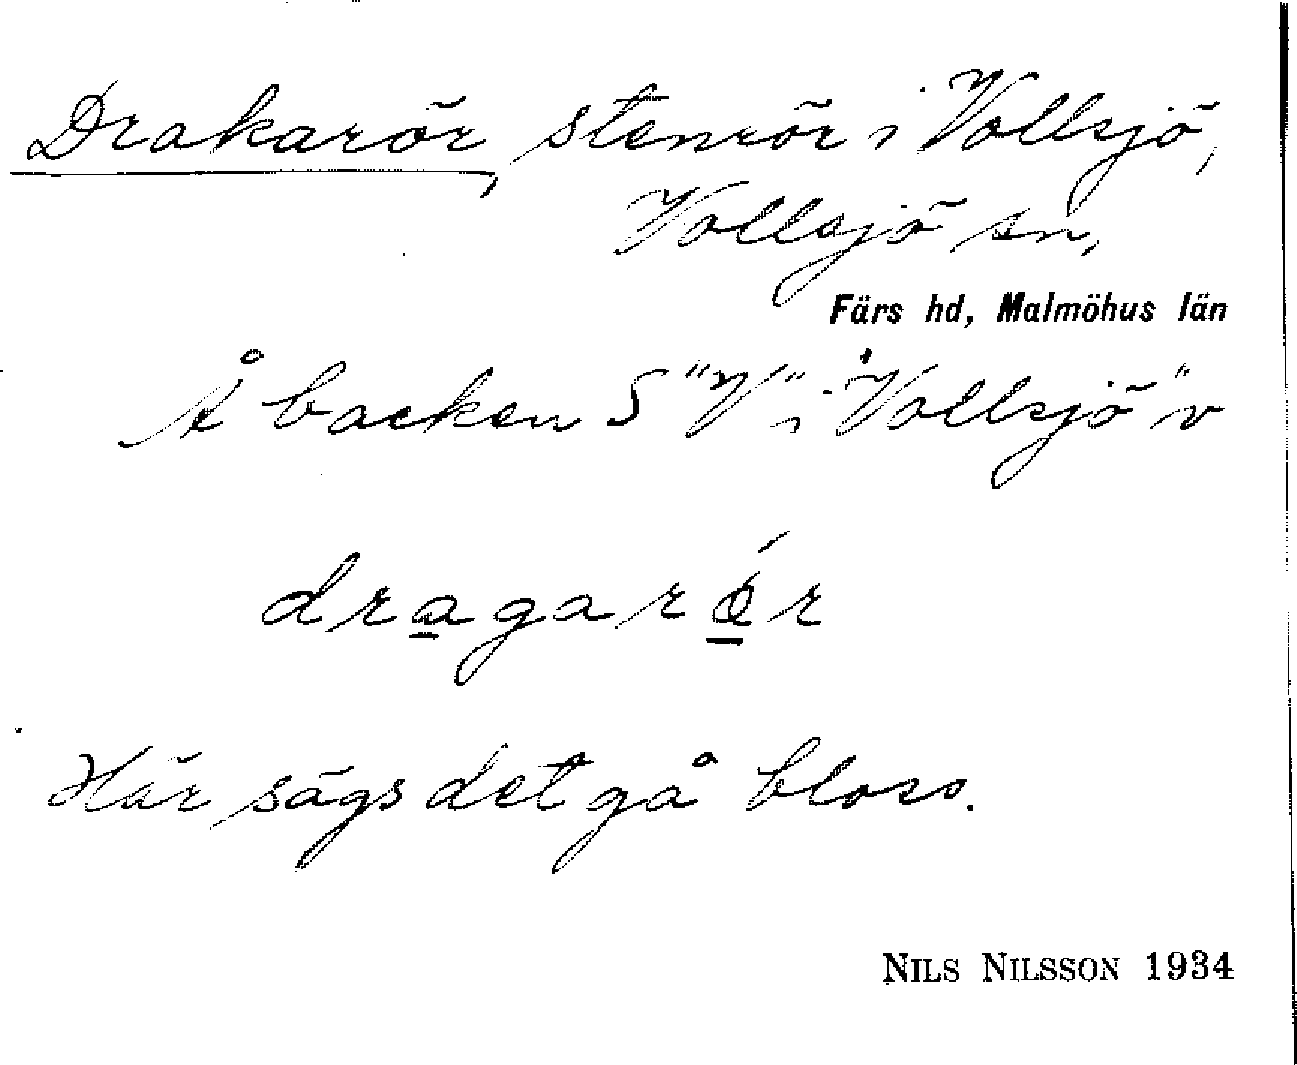 Drakarör, stenrör i Vollsjö,
Vollsjö sn,
Färs hd, Malmöhus län
Å backen S "V" i "Vollsjö" v
dragarǿr
Här sägs det gå bloss.
NILS NILSSON 1934